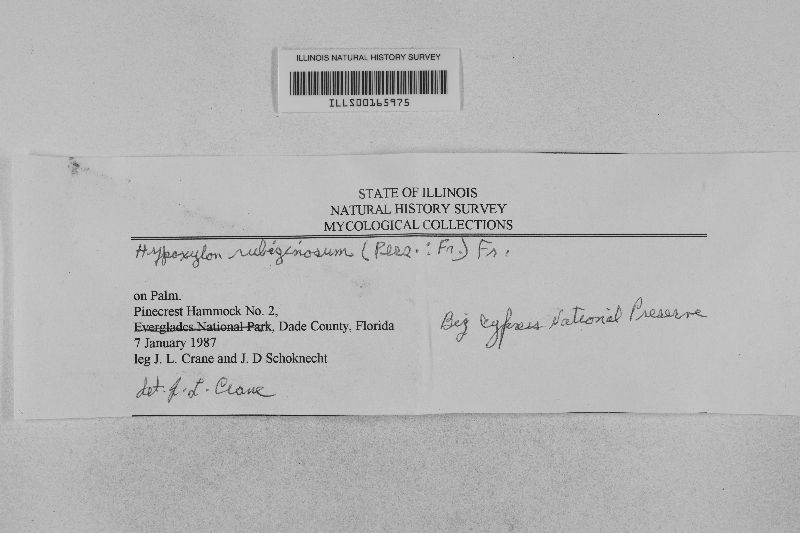 ILLINOIS NATURAL HISTORY SURVEY
ILLS00165975
STATE OF ILLINOIS
NATURAL HISTORY SURVEY
MYCOLOGICAL COLLECTIONS
Hypoxylon rubiginosum (Pers. : Fr.) Fr.
on Palm.
Pinecrest Hammock No. 2,
Everglades National Park, Dade County, Florida
Big Cypress National Preserve
7 January 1987
leg J. L. Crane and J. D Schoknecht
det. J. L. Crane